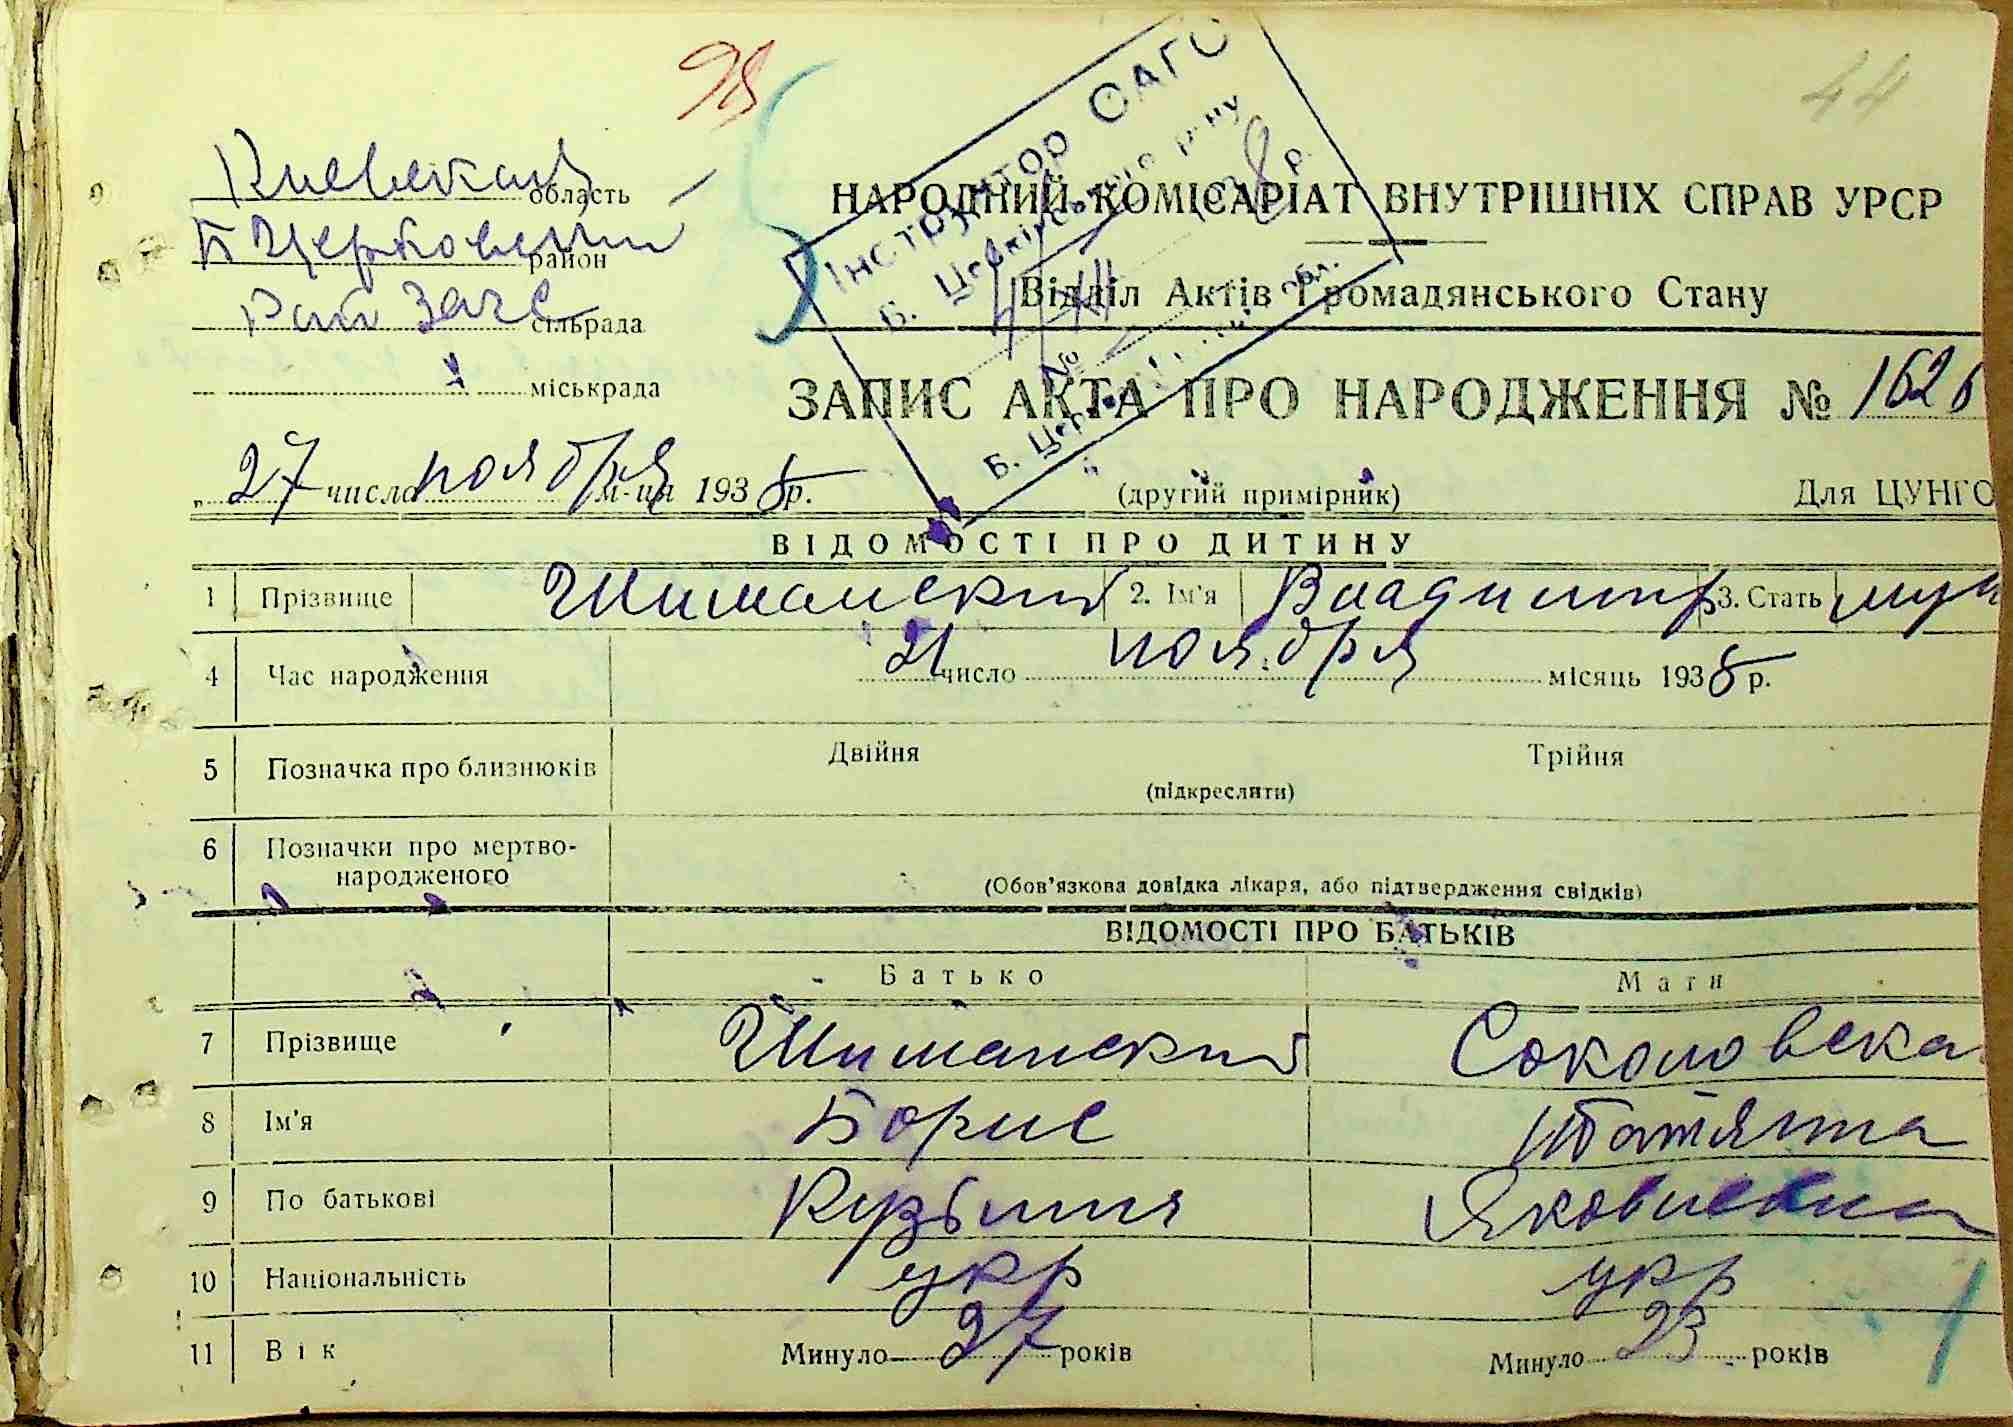 98
44
Киевская область
Б Церковский район
Рай Загс сільрада
міськрада
Інструктор ОАГС
Б. Церківського р-ну
4/XII 1938 р.
№
Б. Церква, обл.
НАРОДНИЙ КОМІСАРІАТ ВНУТРІШНІХ СПРАВ УРСР
Відділ Актів Громадянського Стану
ЗАПИС АКТА ПРО НАРОДЖЕННЯ № 1626
„ 27 число ноября м-ця 1938 р.
(другий примірник)
Для ЦУНГО
ВІДОМОСТІ ПРО ДИТИНУ
1 Прізвище Шиманский 2. Ім'я Владимир 3. Стать муж
4 Час народження 21 число ноября місяць 1938 р.
5 Позначка про близнюків Двійня Трійня
(підкреслити)
6 Позначки про мертво-
народженого
(Обов'язкова довідка лікаря, або підтвердження свідків)
ВІДОМОСТІ ПРО БАТЬКІВ
Батько Мати
7 Прізвище Шиманский Соколовска
8 Ім'я Борис Татяна
9 По батькові Кузьмич Яковлевна
10 Національність укр укр
11 Вік Минуло 27 років Минуло 23 років